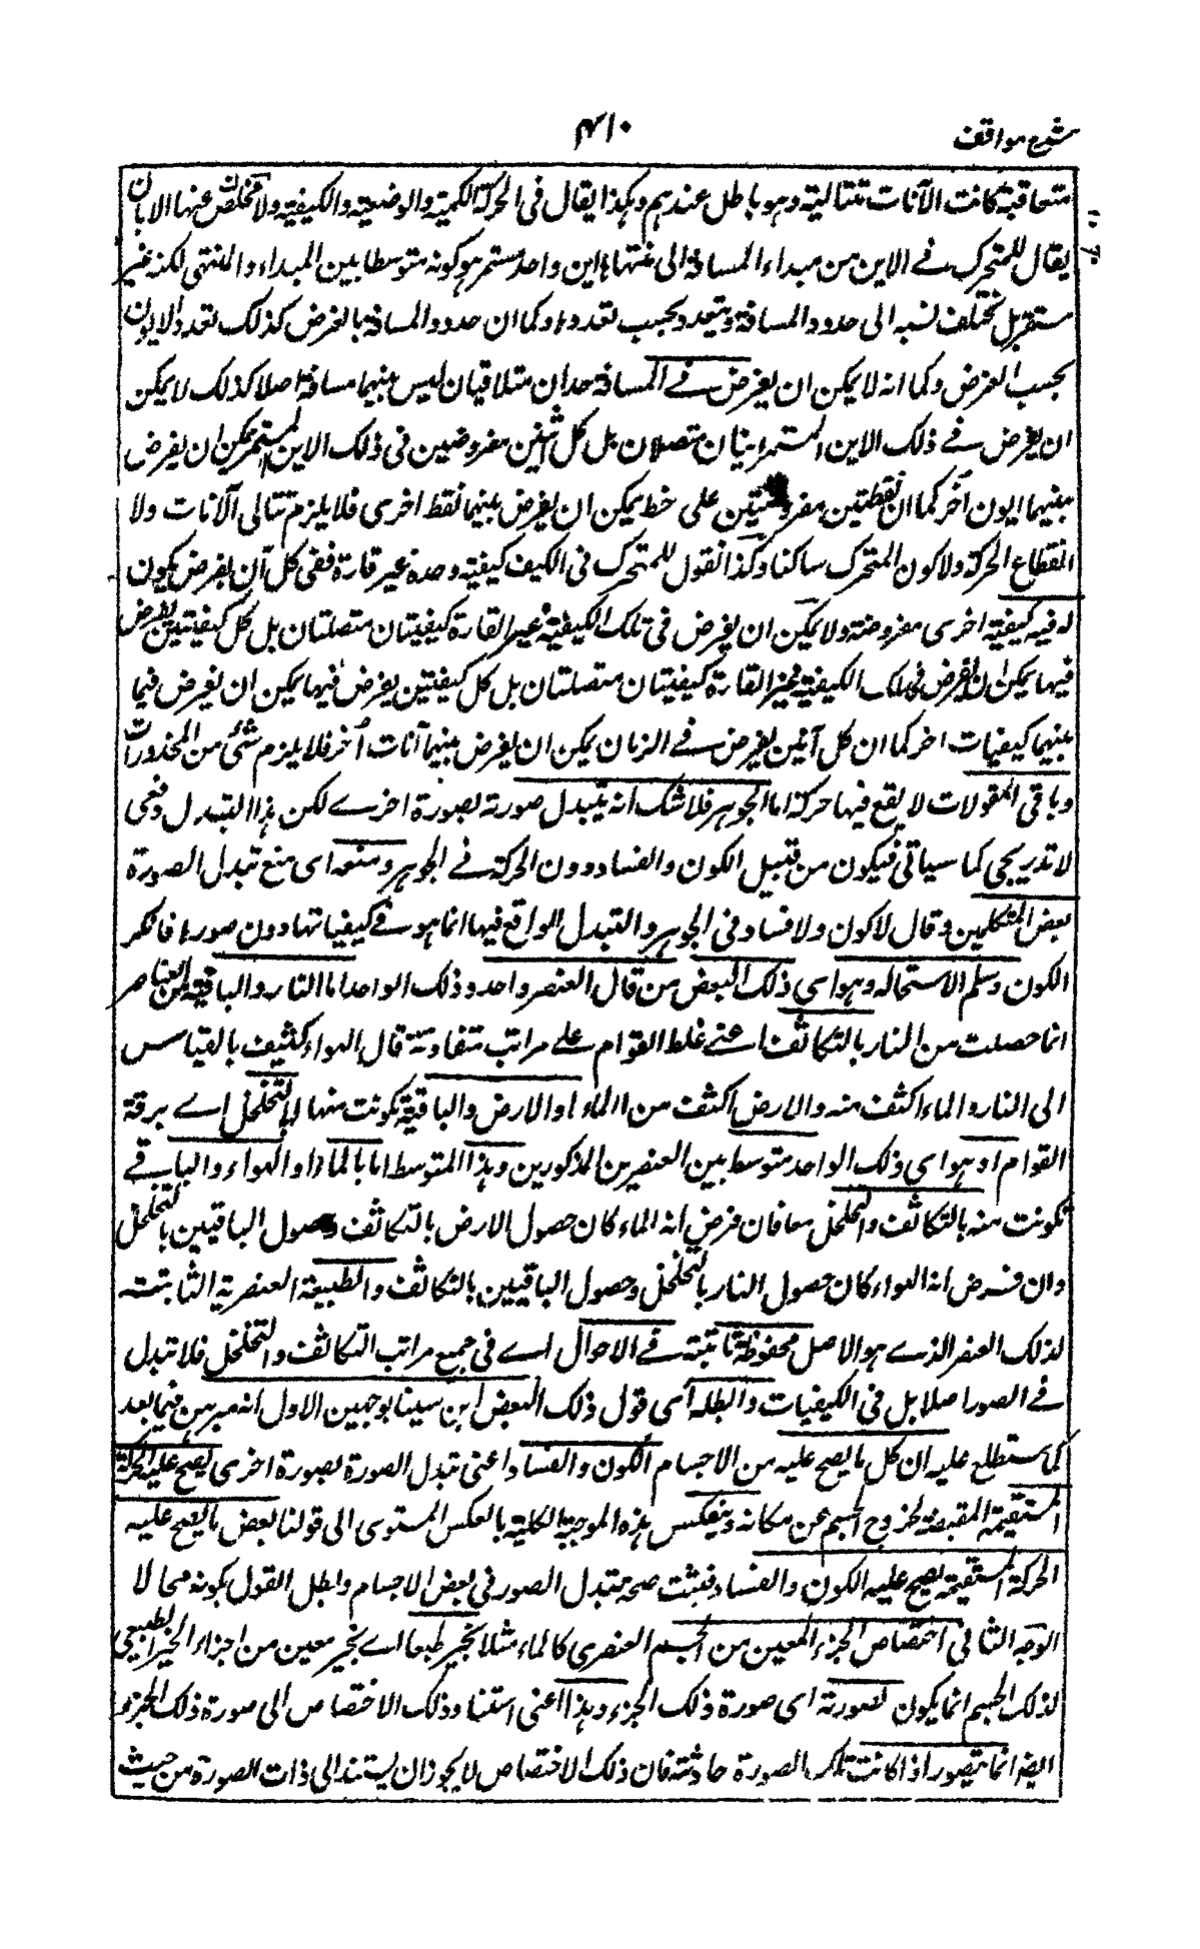 شرح مواقف
۴۱۰
متعاقبة كانت الآنات متتالية وهو باطل عندهم وهكذا يقال فى الحركة الكمية والوضعية والكيفية ولا مخلص عنها الا بان
يقال للمتحرك فى الاين من مبداء المسافة الى منتهاها اين واحد مستمر هو كونه متوسطا بين المبداء والمنتهى لكنه غير
مستقر بل تختلف نسبه الى حدود المسافة ويتعدد بحسب تعددها وكما ان حدود المسافة بالفرض كذلك تعدد الايون
بحسب الفرض وكما انه لا يمكن ان يفرض فى المسافة حدان متلاقيان ليس بينهما مسافة اصلا كذلك لا يمكن
ان يفرض فى ذلك الاين المستمر اينان متصلان بل كل اثنين مفروضين فى ذلك الاين المستمر يمكن ان يفرض
بينهما ايون آخر كما ان نقطتين مفروضتين على خط يمكن ان يفرض بينهما نقط اخرى فلا يلزم تتالى الآنات ولا
انقطاع الحركة ولا كون المتحرك ساكنا وكذا نقول للمتحرك فى الكيف كيفية وحدة غير قارة ففى كل آن يفرض يكون
له فيه كيفية اخرى مفروضة ولا يمكن ان يفرض فى تلك الكيفية غير القارة كيفيتان متصلتان بل كل كيفيتين يفرض
فيها يمكن ان يفرض فى تلك الكيفية غير القارة كيفيتان متصلتان بل كل كيفيتين يفرض فيها يمكن ان يفرض فيما
بينهما كيفيات اخر كما ان كل آنين يفرض فى الزمان يمكن ان يفرض بينهما آنات أخر فلا يلزم شئ من المحذورات
وباقى المقولات لا يقع فيها حركة اما الجوهر فلا شك انه يتبدل صورته بصورة اخرے لكن هذا التبدل دفعى
لا تدريجى كما سياتى فيكون من قبيل الكون والفساد دون الحركة فى الجوهر ومنعه اى منع تبدل الصورة
بعض المتكلمين وقال لا كون ولا فساد فى الجوهر والتبدل الواقع فيها انما هو فى كيفياتها دون صورها فانكر
الكون وسلم الاستحاله وهو اى ذلك البعض من قال العنصر واحد وذلك الواحد اما النار والباقية من العناصر
انما حصلت من النار بالتكاثف اعنى غلظ القوام على مراتب متفاوتة قال الهواء كثيف بالقياس
الى النار والماء اكثف منه والارض اكثف من الماء او الارض والباقية تكونت منها بالتخلخل اے برقة
القوام او هو اى ذلك الواحد متوسط بين العنصرين المذكورين وهذا المتوسط اما بالماء او الهواء والباقے
تكونت منه بالتكاثف والتخلخل معا فان فرض انه الماء كان حصول الارض بالتكاثف وحصول الباقيين بالتخلخل
وان فرض انه الهواء كان حصول النار بالتخلخل وحصول الباقيين بالتكاثف والطبيعة العنصرية الثابتة
لذلك العنصر الذے هو الاصل محفوظة ثابتة فے الاحوال اے فى جميع مراتب التكاثف والتخلخل فلا تبدل
فے الصور اصلا بل فى الكيفيات وابطله اى قول ذلك البعض ابن سينا بوجهين الاول انه مبرهن فيما بعد
كما ستطلع عليه ان كل ما يصح عليه من الاجسام الكون والفساد اعنى تبدل الصورة بصورة اخرى يصح عليه الحركة
المستقيمة المقتضية لخروج الجسم عن مكانه وينعكس هذه الموجبة الكلية بالعكس المستوى الى قولنا بعض ما يصح عليه
الحركة المستقيمة يصح عليه الكون والفساد فيثبت صحة تبدل الصور فى بعض الاجسام وبطل القول بكونه محالا
الوجه الثانى اختصاص الجزء المعين من الجسم العنصرى كالماء مثلا بحيز طبعا اے بحيز معين من اجزاء الحيز الطبيعى
لذلك الجسم انما يكون لصورته اى صورة ذلك الجزء وهذا اعنى استناد ذلك الاختصاص الى صورة ذلك الجزء
ايضا انما يتصور اذا كانت تلك الصورة حادثة فان ذلك الاختصاص لا يجوز ان يستند الى ذات الصورة من حيث